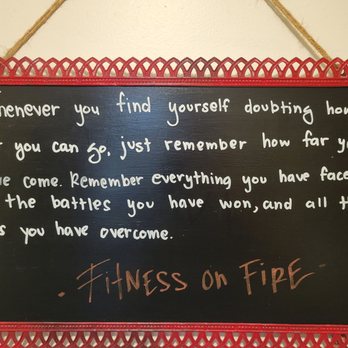 whenever you find yourself doubting how
you can go, just remember how far
come. Remember everything you have
the battles you have won, and all
you have overcome.
FitNESS on FIRE